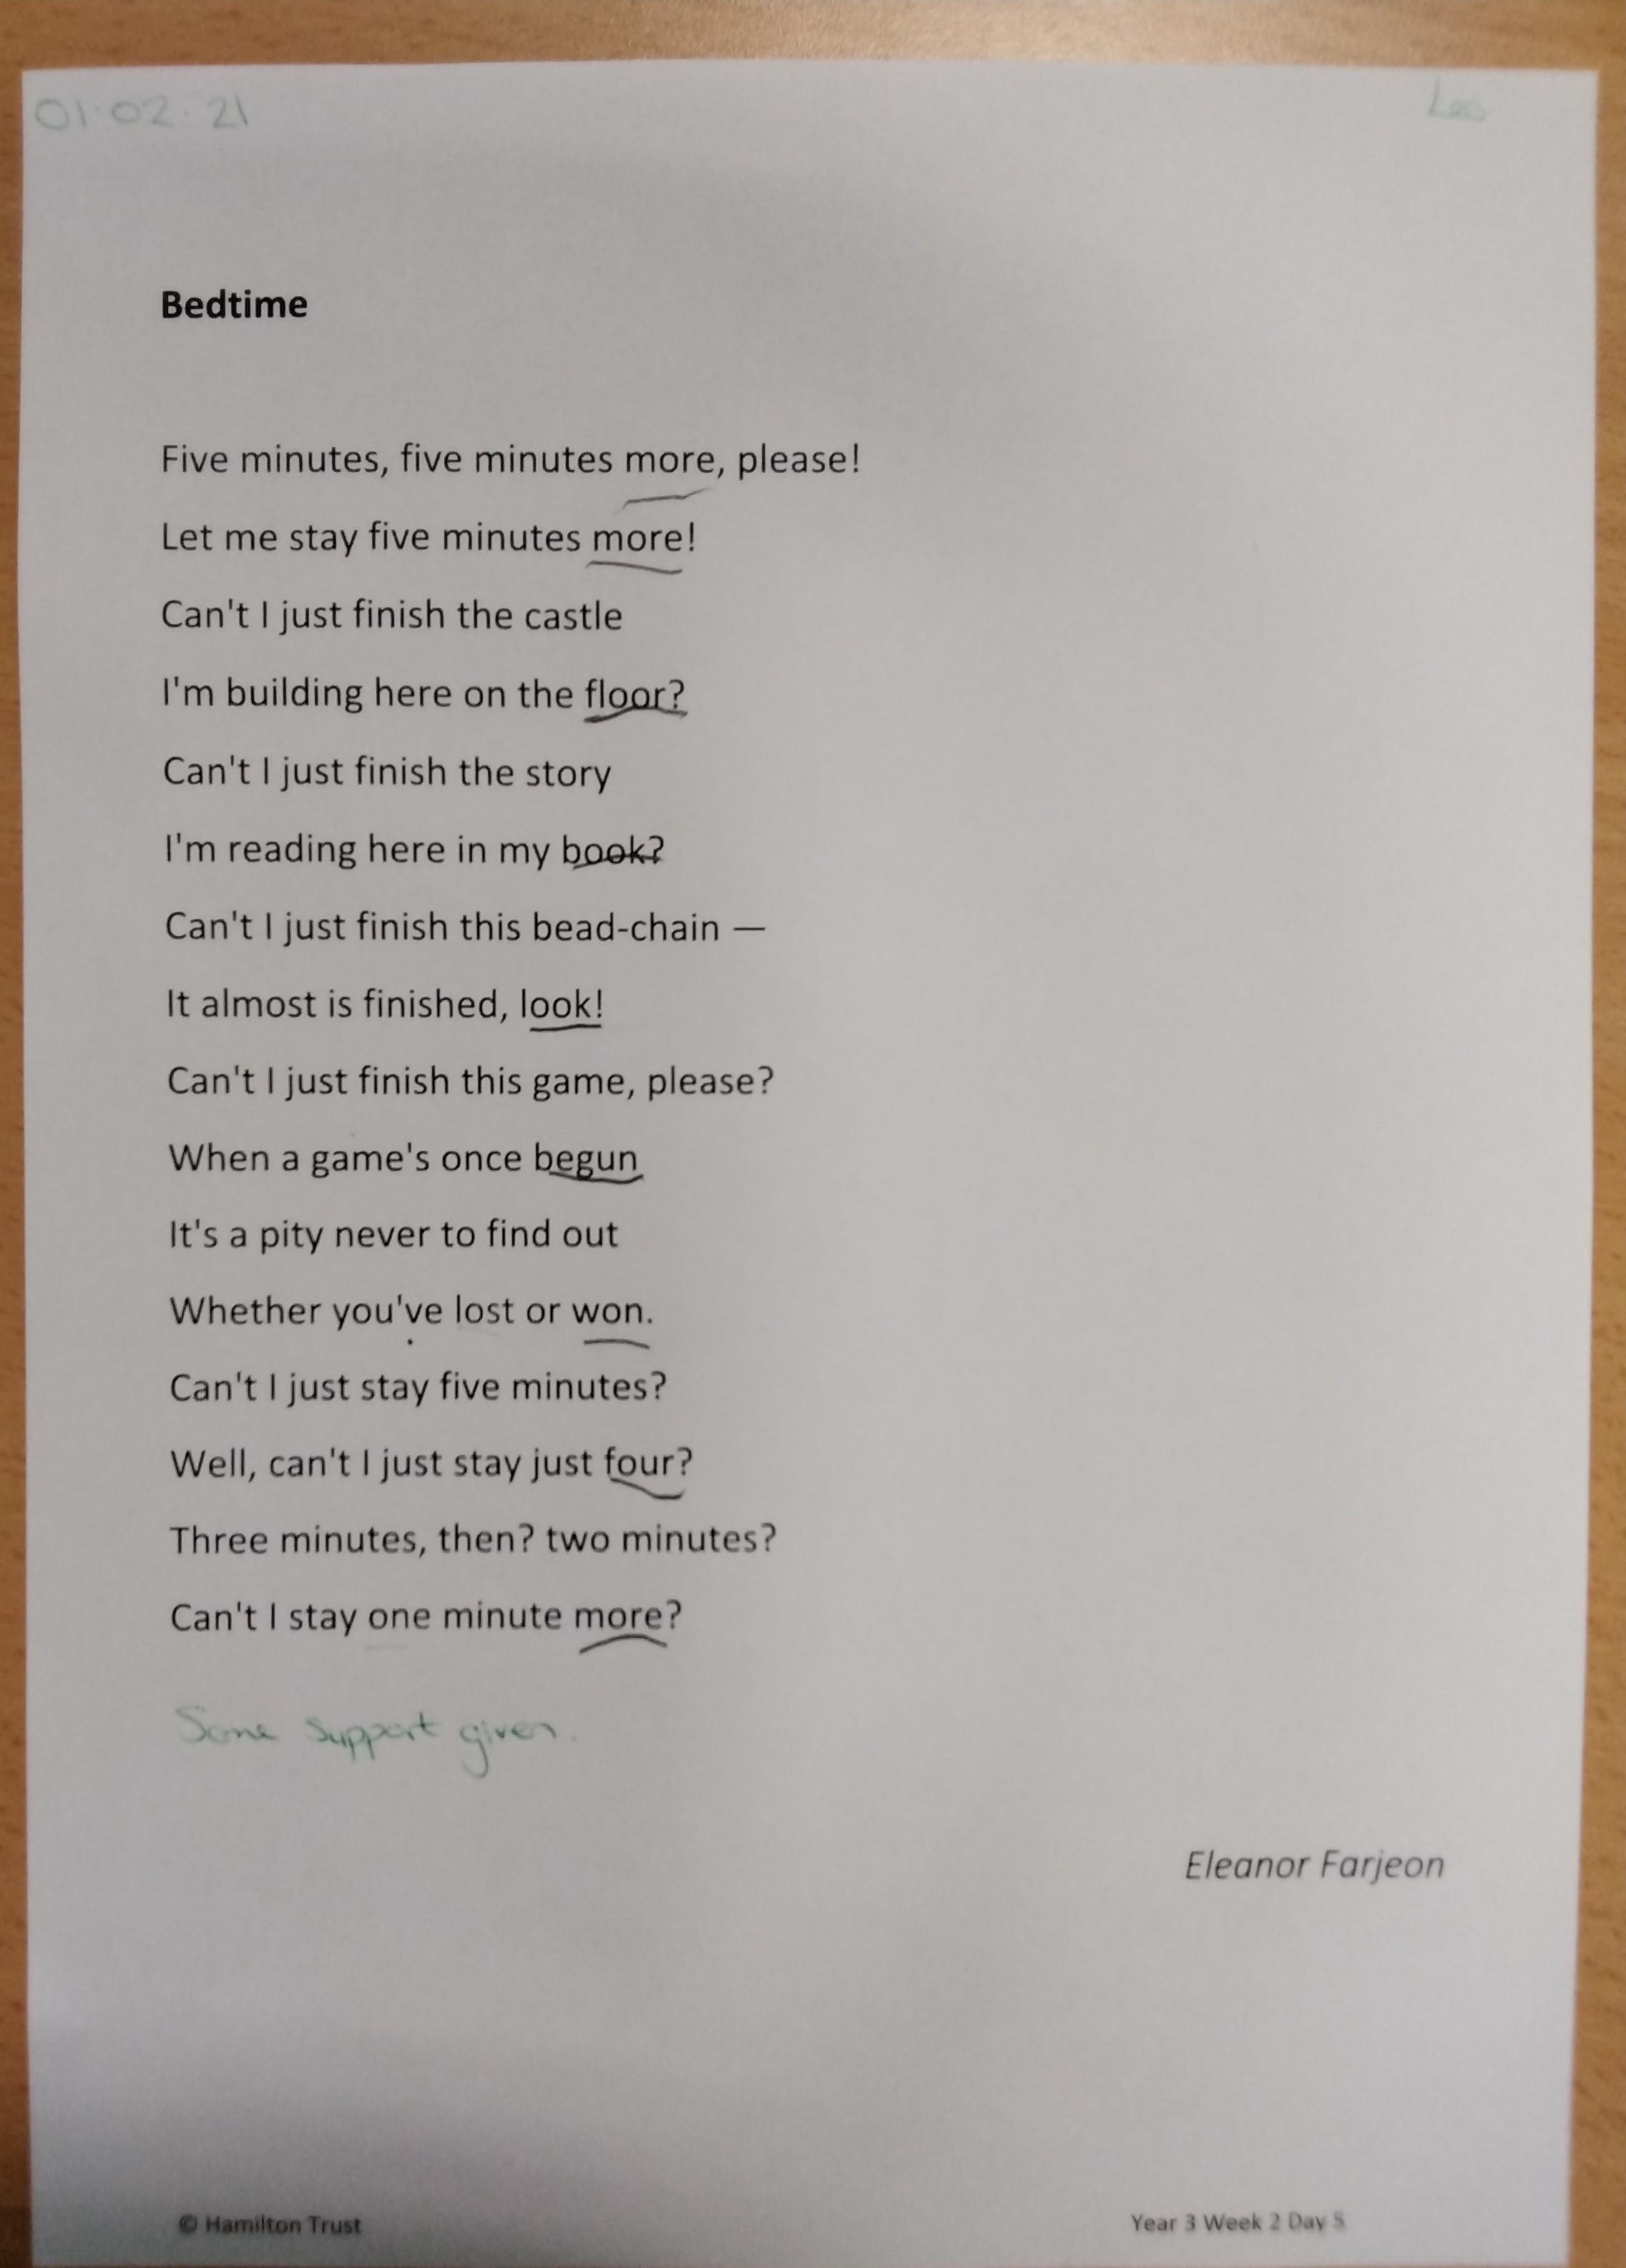 01.02.21
Bedtime
Five minutes, five minutes more, please!
Let me stay five minutes more!
Can't I just finish the castle
I'm building here on the floor?
Can't I just finish the story
I'm reading here in my book?
Can't I just finish this bead-chain —
It almost is finished, look!
Can't I just finish this game, please?
When a game's once begun
It's a pity never to find out
Whether you've lost or won.
Can't I just stay five minutes?
Well, can't I just stay just four?
Three minutes, then? two minutes?
Can't I stay one minute more?
Some support given.
Eleanor Farjeon
© Hamilton Trust Year 3 Week 2 Day 5